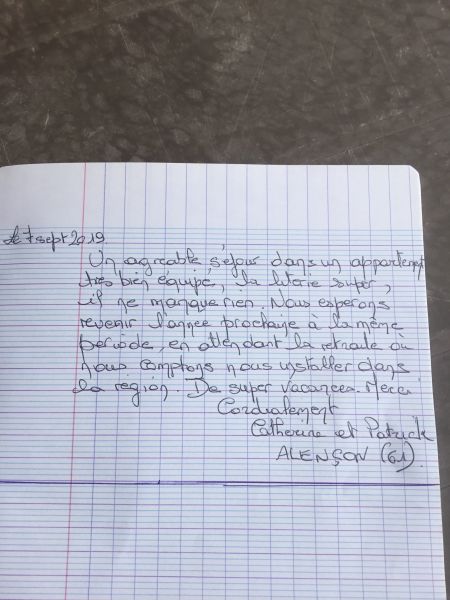 le 7 sept 2019.
Un agréable séjour dans un appartement
très bien équipé, la literie super,
il ne manque rien. Nous esperons
revenir l'année prochaine à la même
periode, en attendant la retraite ou
nous comptons nous installer dans
la région. De super vacances. Merci
Cordialement
Catherine et Patrick
ALENÇON (61).